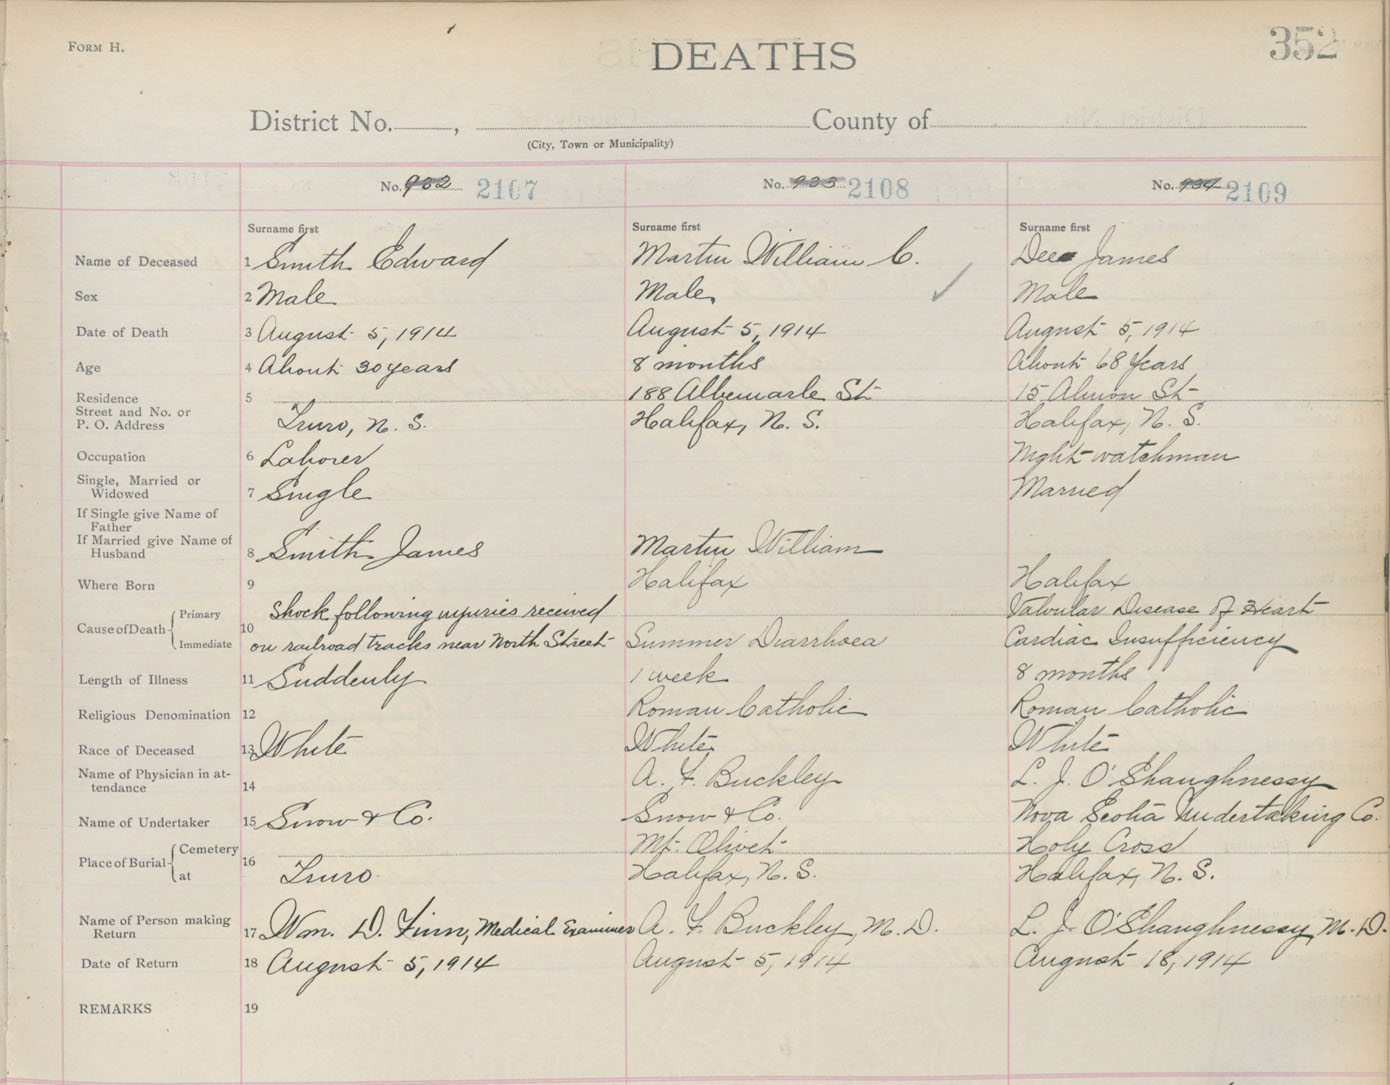 FORM H.
352
DEATHS
District No. , County of
(City, Town or Municipality)
No. 932 2107 No. 933 2108 No. 934 2109
Surname first Surname first Surname first
Name of Deceased 1 Smith Edward Martin William C. Dee James
Sex 2 Male Male Male
Date of Death 3 August 5, 1914 August 5, 1914 August 5, 1914
Age 4 About 30 years 8 months About 68 years
Residence 5 188 Albemarle St 15 Almon St
Street and No. or
P. O. Address Truro, N. S. Halifax, N. S. Halifax, N. S.
Occupation 6 Laborer Night-watchman
Single, Married or
Widowed 7 Single Married
If Single give Name of
Father
If Married give Name of
Husband 8 Smith James Martin William
Where Born 9 Halifax Halifax
Cause of Death Primary Shock following injuries received Valvular Disease of Heart
10 Immediate on railroad tracks near North Street Summer Diarrhoea Cardiac Insufficiency
Length of Illness 11 Suddenly 1 week 8 months
Religious Denomination 12 Roman Catholic Roman Catholic
Race of Deceased 13 White White White
Name of Physician in at-
tendance 14 A. F. Buckley L. J. O'Shaughnessy
Name of Undertaker 15 Snow & Co. Snow & Co. Nova Scotia Undertaking Co.
Place of Burial Cemetery 16 Mt. Olivet Holy Cross
at Truro Halifax, N. S. Halifax, N. S.
Name of Person making
Return 17 Wm. D. Finn, Medical Examiner A. F. Buckley, M. D. L. J. O'Shaughnessy, M. D.
Date of Return 18 August 5, 1914 August 5, 1914 August 18, 1914
REMARKS 19